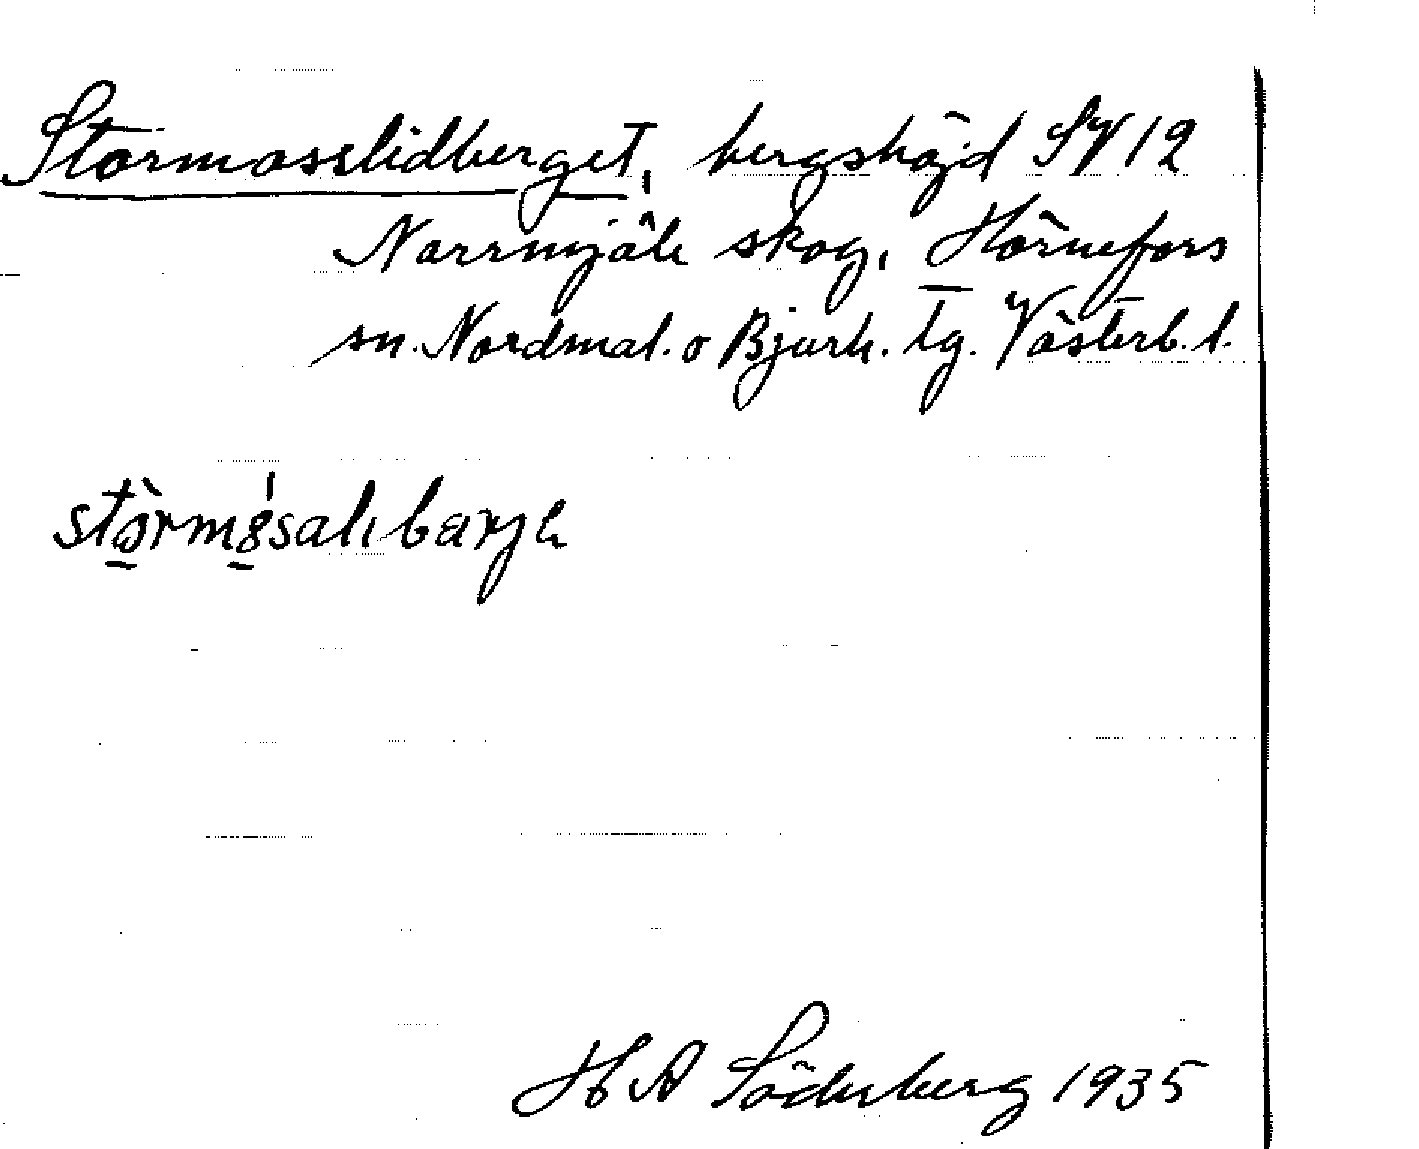 Stormosslidberget, bergshöjd SV 12
Norrmjöle skog, Hörnefors
sn. Nordmal. o Bjurh. tg. Västerb. l.
H A Söderberg 1935